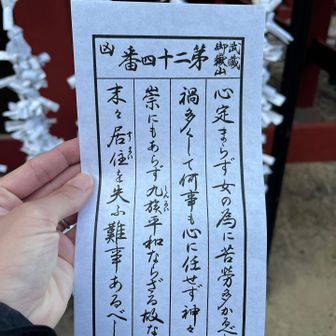 武蔵
御嶽山
第二十四番
凶
心定まらず女の為に苦労多か
禍多くして何事も心に任せず神々
祟にもあらず九族平和ならざる故な
末々居住を失ふ難事あるべし